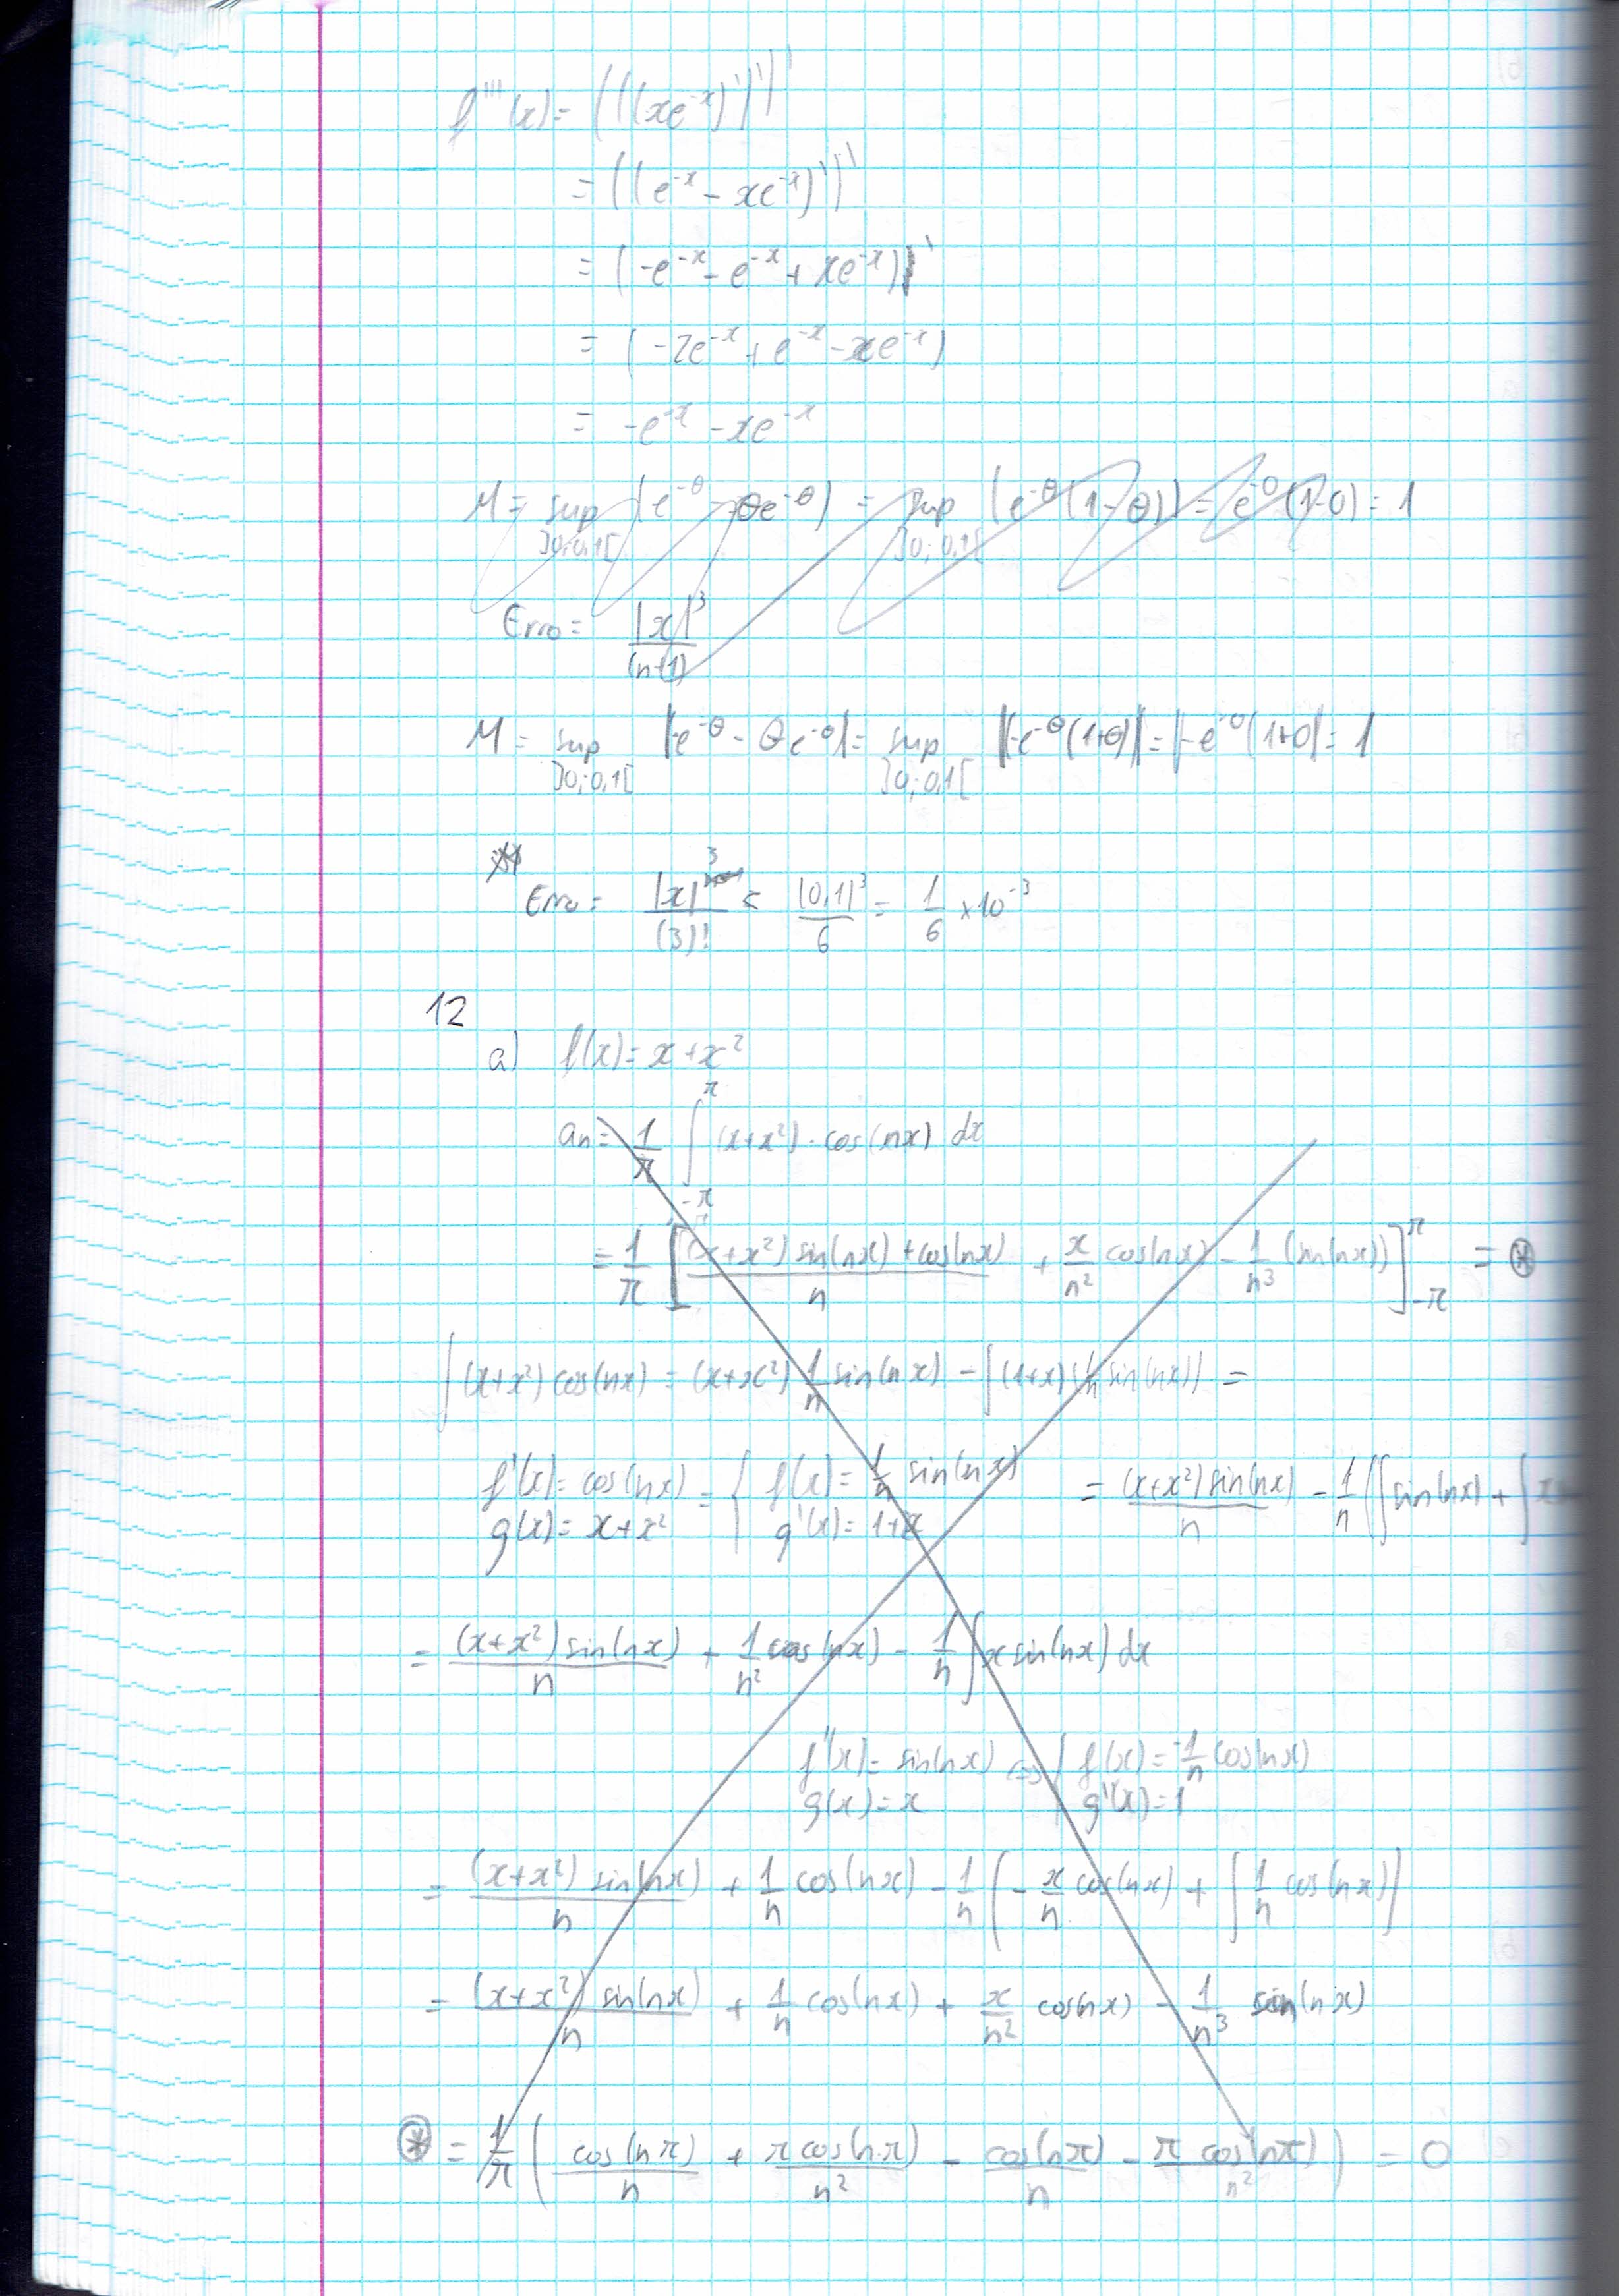 f'''(x) = (((xe^-x)')')'
= ((e^-x - xe^-x)')'
= (-e^-x - e^-x + xe^-x)'
= (-2e^-x + e^-x - xe^-x)
= -e^-x - xe^-x
M = sup ]0;0,1[ (e^-θ - θe^-θ) = sup ]0;0,1[ (e^-θ (1-θ)) = e^-0 (1-0) = 1
Erro = |x|^3 / (n+1)
M = sup ]0;0,1[ |-e^-θ - θe^-θ| = sup ]0;0,1[ |-e^-θ (1+θ)| = |-e^-0 (1+0)| = 1
Erro = |x|^3 / (3)! < |0,1|^3 / 6 = 1/6 × 10^-3
12
a) f(x) = x + x^2
an = 1/π ∫_-π^π (x+x^2) · cos(nx) dx
= 1/π [ ((x+x^2) sin(nx) + cos(nx)) / n + x/n^2 cos(nx) - 1/n^3 (sin(nx)) ]_-π^π = ⊛
∫ (x+x^2) cos(nx) = (x+x^2) 1/n sin(nx) - ∫ (1+x) (1/n sin(nx)) =
f'(x) = cos(nx) = { f(x) = 1/n sin(nx) = (x+x^2) sin(nx) / n - 1/n (∫ sin(nx) + ∫ x
g(x) = x + x^2 g'(x) = 1+x
= (x+x^2) sin(nx) / n + 1/n^2 cos(nx) - 1/n ∫ x sin(nx) dx
f'(x) = sin(nx) <=> { f(x) = -1/n cos(nx)
g(x) = x g'(x) = 1
= (x+x^2) sin(nx) / n + 1/n cos(nx) - 1/n ( - x/n cos(nx) + ∫ 1/n cos(nx) )
= (x+x^2) sin(nx) / n + 1/n cos(nx) + x/n^2 cos(nx) - 1/n^3 sin(nx)
⊛ = 1/π ( cos(nπ) / n + π cos(nπ) / n^2 - cos(nπ) / n - π cos(nπ) / n^2 ) = 0